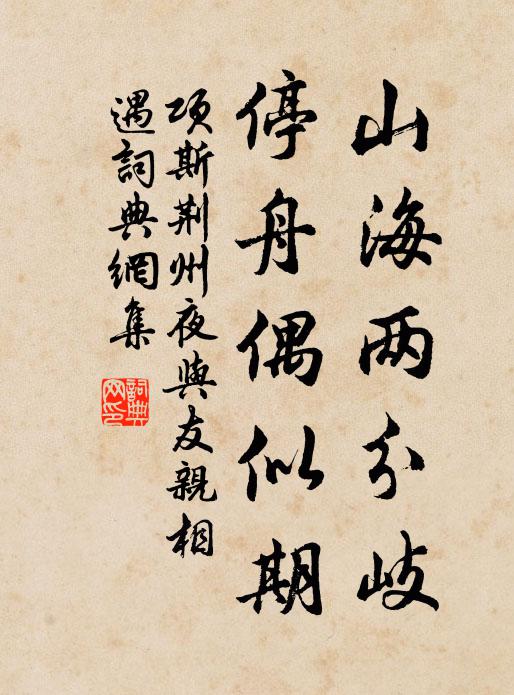 山海两分岐
停舟偶似期
项斯荆州夜與友親相
遇詞典網集
詞典
网印